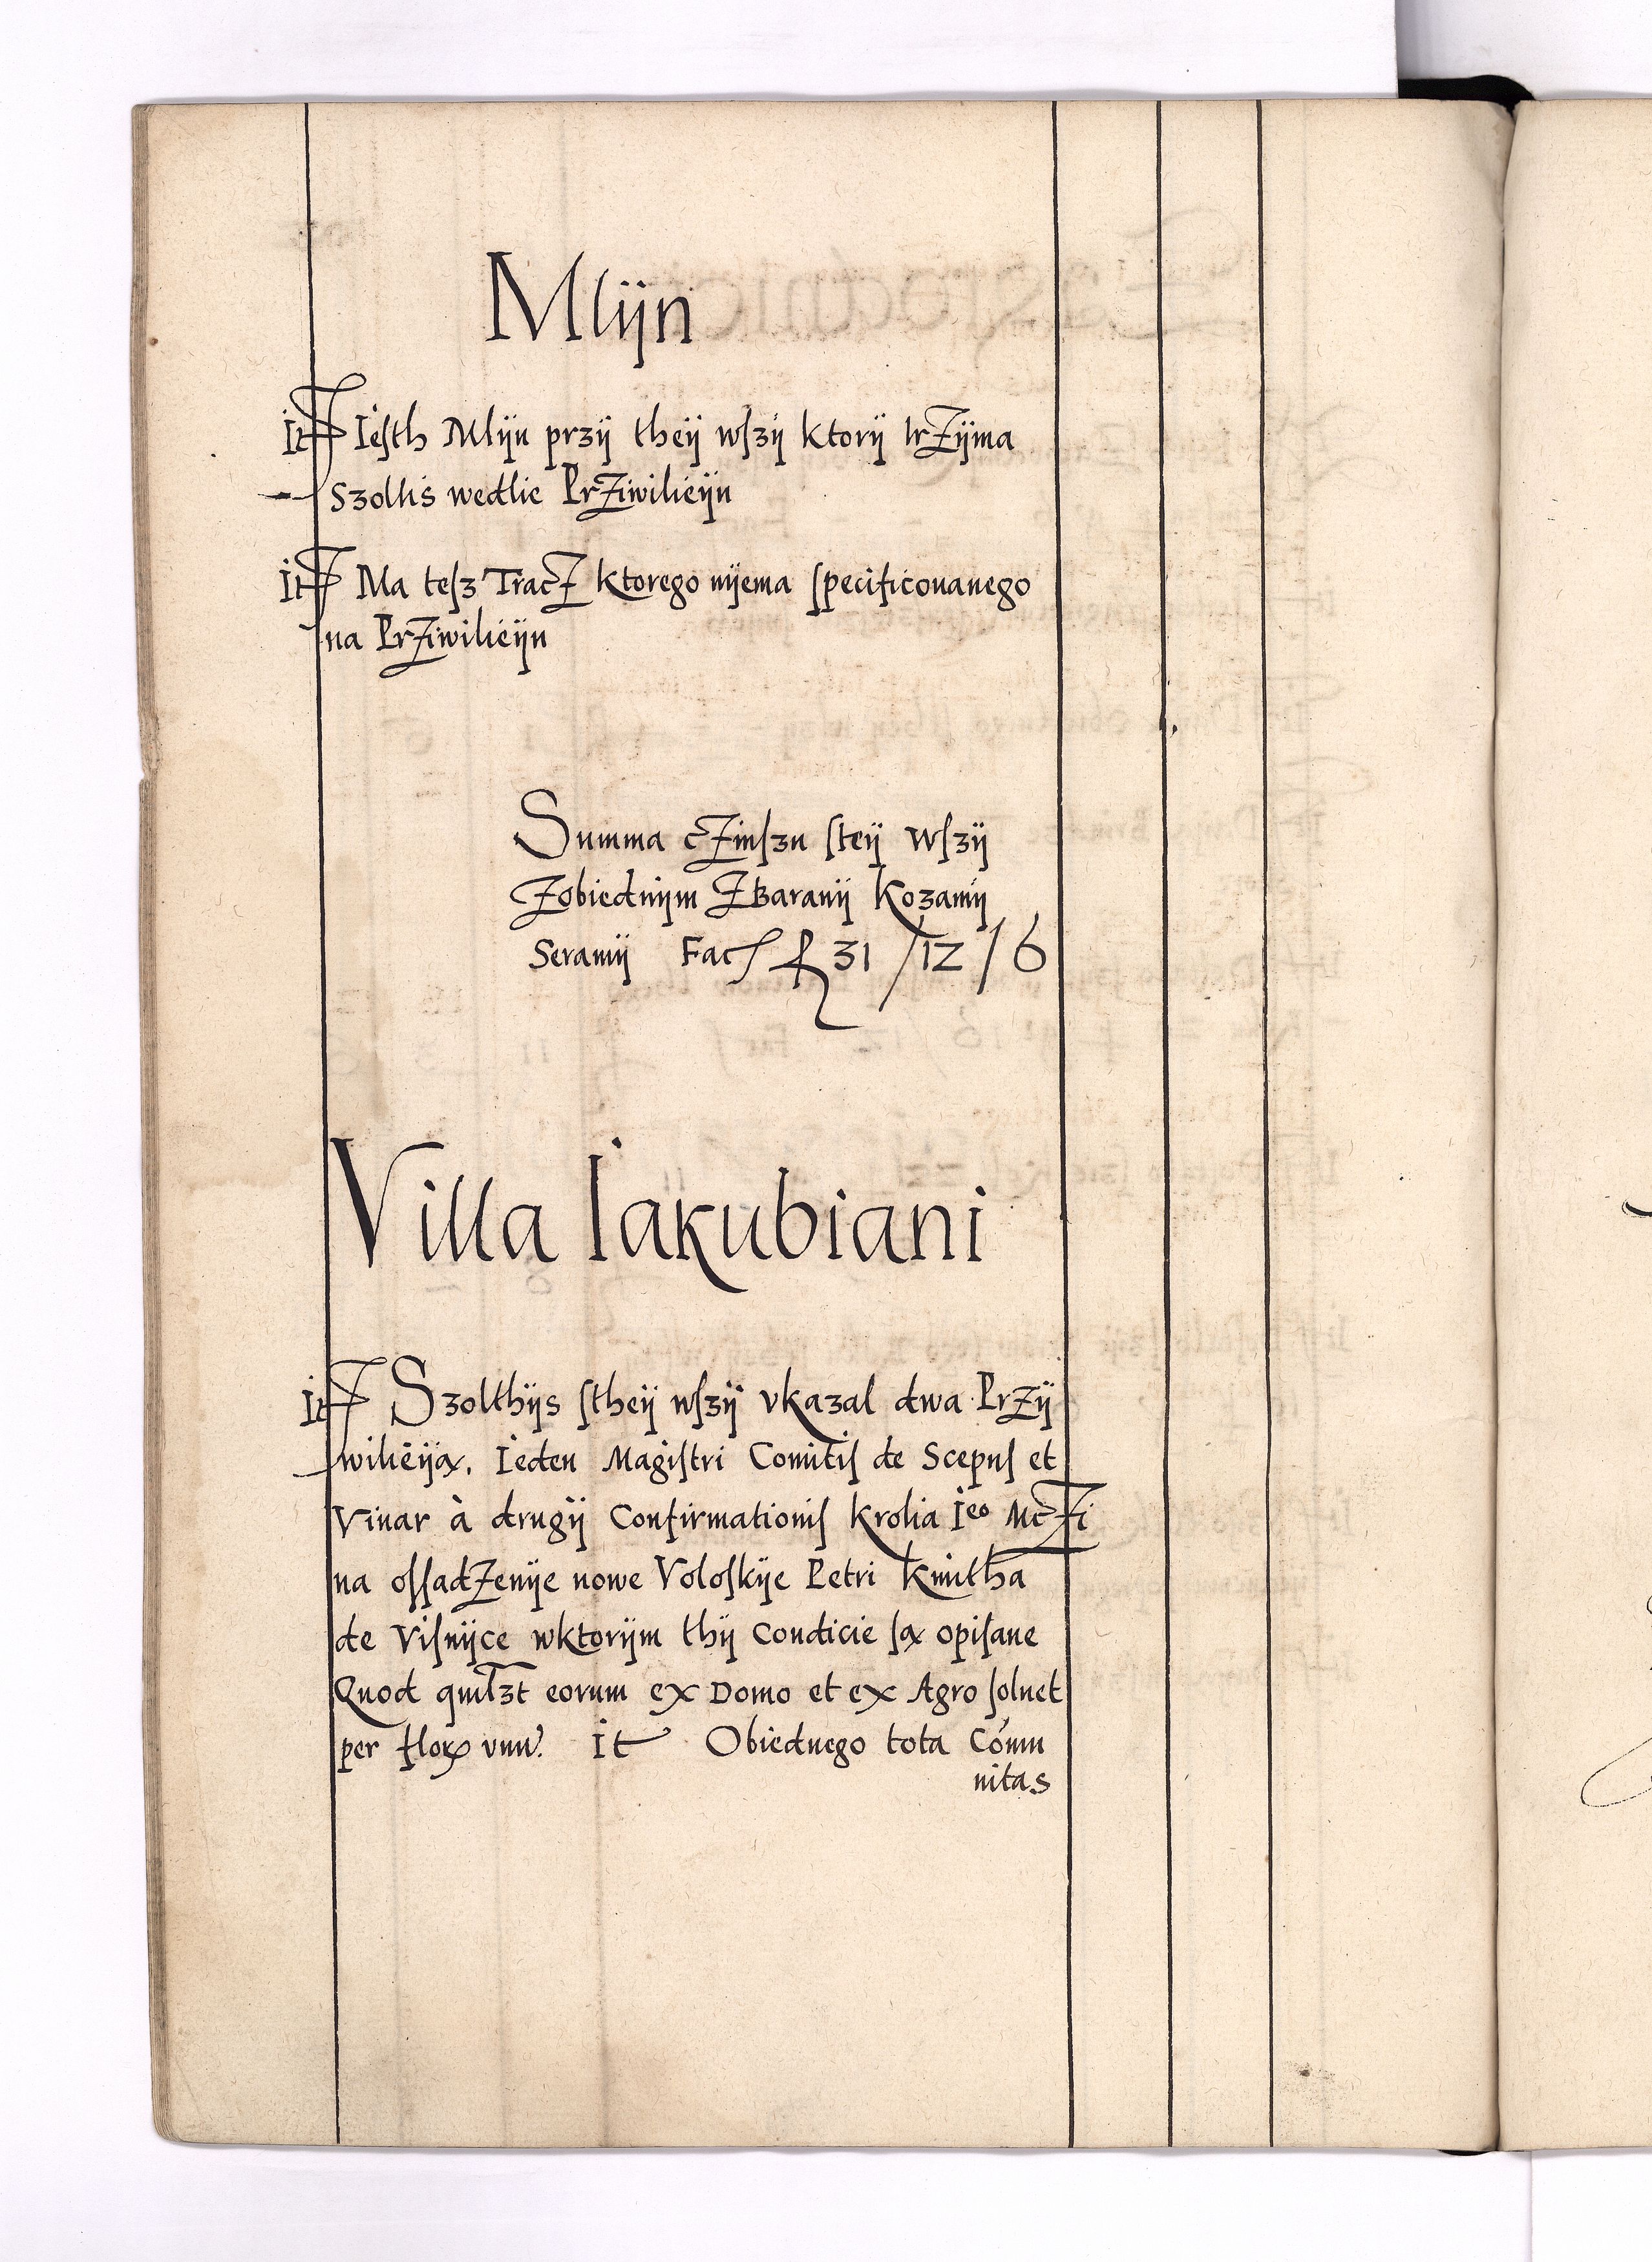 Mlijn
It Iesth Mlijn przij theij wſzij ktorij trzijma
Szoltis wedlie Prziwilieiju
It Ma teſz Tracz ktorego nijema ſpecificouanego
na Prziwilieiju
Summa czinſzu ſteij wſzij
Zobiednijm Zbaranij kozamij
Seramij Fac f 31 /12 / 6
Villa Iakubiani
It Szolthijs ſtheij wſzij vkazal dwa Przij
wilieija. Ieden Magiſtri Comitiſ de Scepuſ et
Viuar à drugij Confirmationiſ krolia Ieo Mczi
na oſſadzenije nowe Voloſkije Petri kmitha
de Viſnijce wktorijm thij Condicie ſa opiſane
Quod quilzt eorum ex Domo et ex Agro ſoluet
per flor vnu. It Obiednego tota Comu
nitas